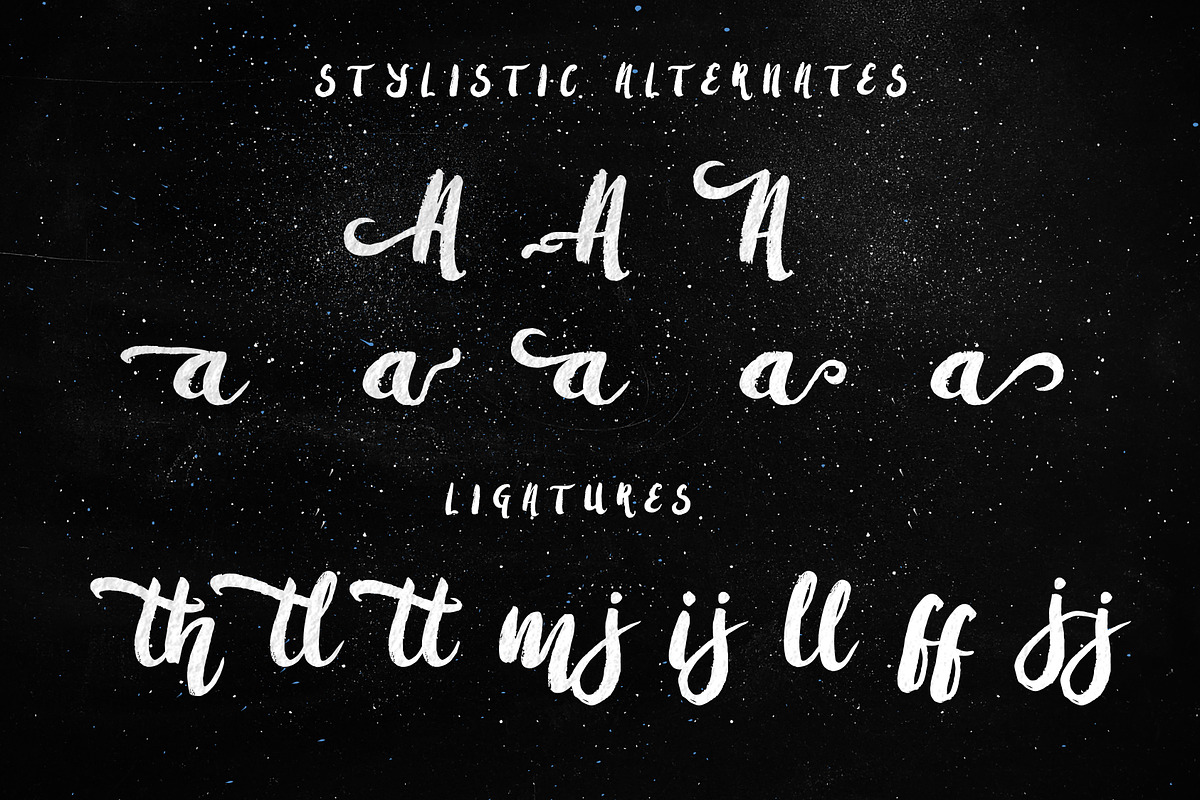 STYLISTIC ALTERNATES
A A A
a a a a a
LIGATURES
th tl tt mj ij ll ff jj